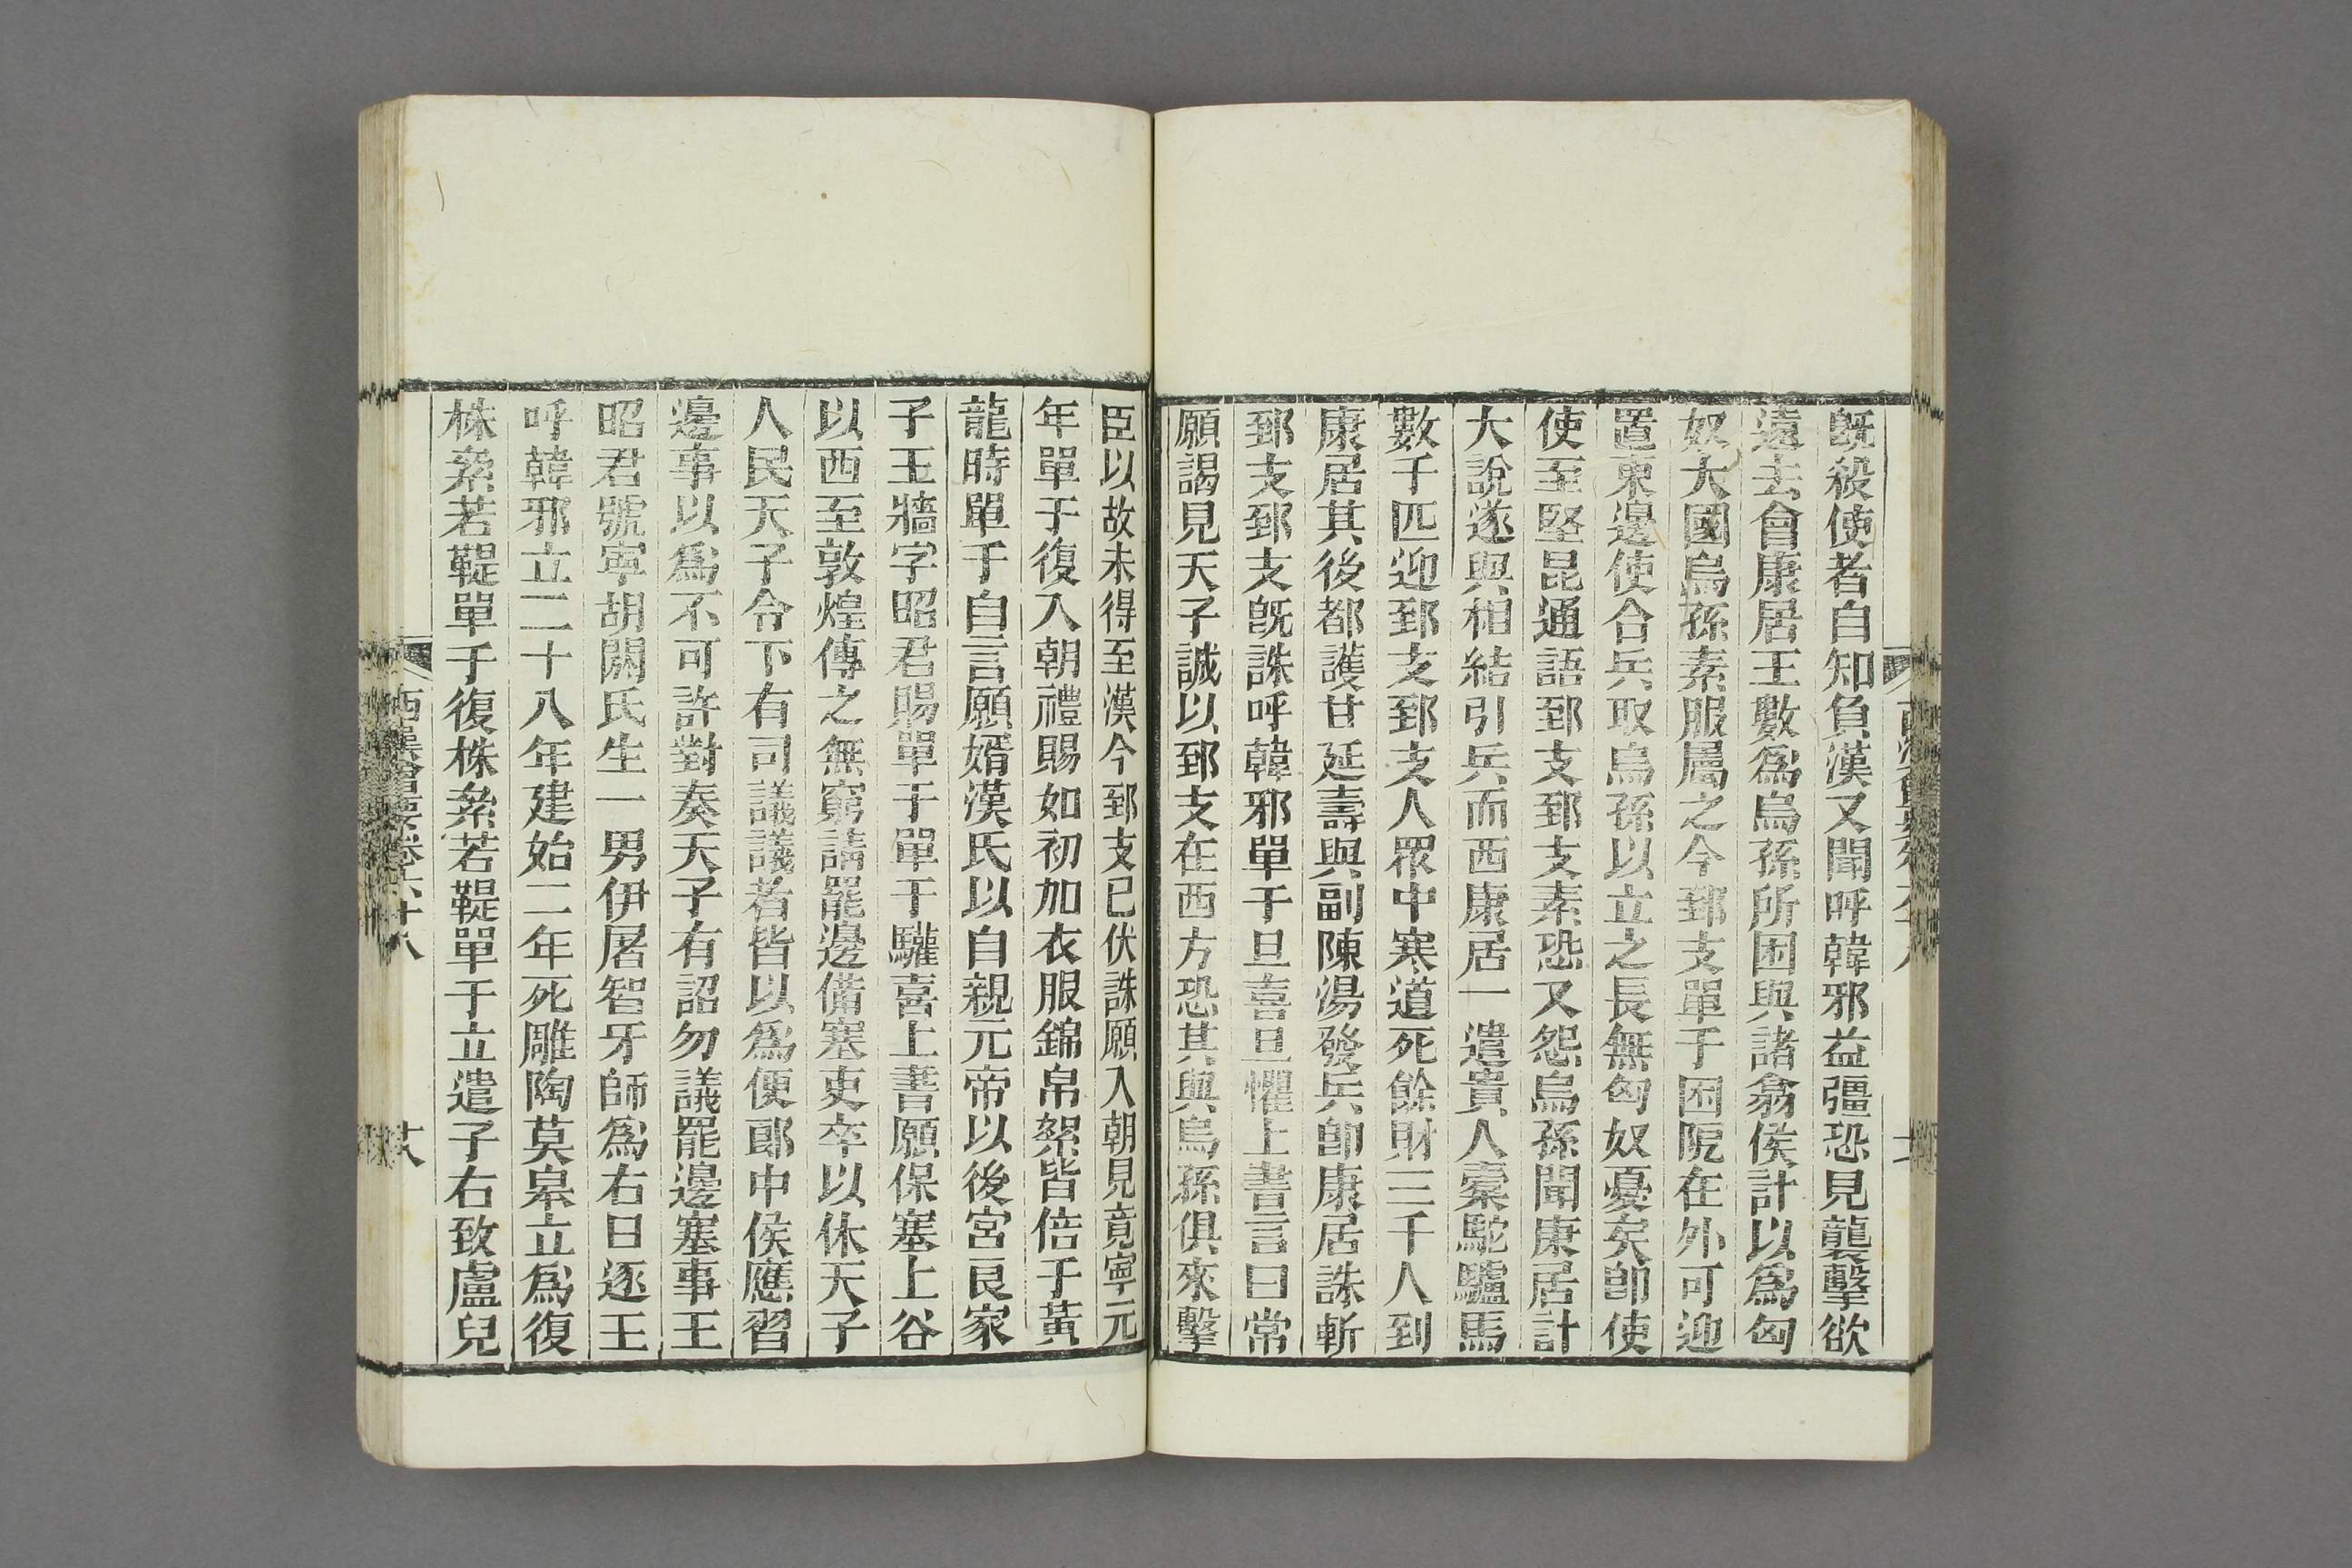 既殺使者自知負漢又聞呼韓邪益彊恐見襲擊欲
遠去會康居王數爲烏孫所困與諸翕侯計以爲匈
奴大國烏孫素服屬之今郅支單于困阨在外可迎
置東邊使合兵取烏孫以立之長無匈奴憂矣卽使
使至堅昆通語郅支郅支素恐又怨烏孫聞康居計
大說遂與相結引兵而西康居一遣貴人橐駝驢馬
數千匹迎郅支郅支人眾中寒道死餘財三千人到
康居其後都護甘延壽與副陳湯發兵卽康居誅斬
郅支郅支既誅呼韓邪單于且喜且懼上書言曰常
願謁見天子誠以郅支在西方恐其與烏孫俱來擊
臣以故未得至漢今郅支已伏誅願入朝見竟寧元
年單于復入朝禮賜如初加衣服錦帛絮皆倍于黃
龍時單于自言願婿漢氏以自親元帝以後宮良家
子王牆字昭君賜單于單于驩喜上書願保塞上谷
以西至敦煌傳之無窮請罷邊備塞吏卒以休天子
人民天子令下有司議議者皆以爲便郎中侯應習
邊事以爲不可許對奏天子有詔勿議罷邊塞事王
昭君號寧胡閼氏生一男伊屠智牙師爲右日逐王
呼韓邪立二十八年建始二年死雕陶莫皋立爲復
株絫若鞮單于復株絫若鞮單于立遣子右致盧兒
西漢會要卷六十八